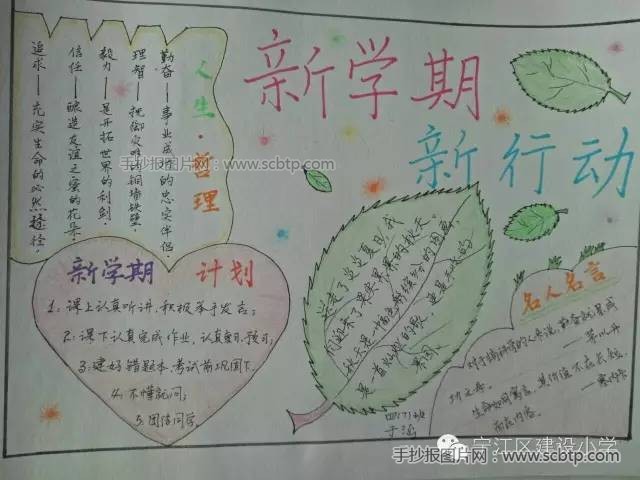 新学期
新行动
人生·哲理
勤奋——事业成功的忠实伴侣.
理智——抵御灾难的铜墙铁壁.
毅力——是开拓世界的利剑.
信任——酿造友谊之蜜的花朵.
追求——充实生命的必然途径.
手抄报图片网:www.scbtp.com
新学期 计划
1:课上认真听讲,积极举手发言;
2:课下认真完成作业,认真复习,预习;
3:建好错题本,考试前巩固下.
4:不懂就问;
5:团结同学.
送走了炎炎夏日,我
们迎来了果实累累的秋天.
秋天是一幅色彩缤纷的图画,
是一首
的歌,
四(7)班
名人名言
对于搞科学的人来说,勤奋就是成
功之母.
——茅以升
生命如同寓言,其价值不在长短,
而在内容.
——塞内卡
宁江区建设小学
手抄报图片网:www.scbtp.com